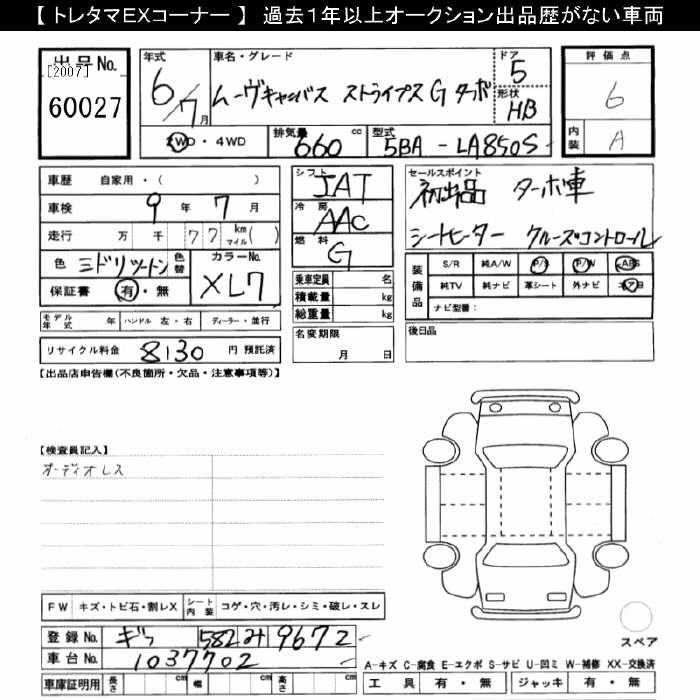 【 トレタマEXコーナー 】 過去1年以上オークション出品歴がない車両
出品No. [2007] 60027
年式 6/7月
車名・グレード ムーヴキャンバス ストライプス G ターボ
ドア 5
形状 HB
評価点 6
内装 A
2WD・4WD 排気量 660 cc 型式 5BA - LA850S
車歴 自家用・( )
車検 9年 7月
走行 万 千 77 km マイル ( )
色 ミドリツートン 色替 カラーNo. XL7
保証書 有・無
モデル年式 年 ハンドル 左・右 ディーラー・並行
リサイクル料金 8130 円 預託済
シフト IAT
冷房 AAC
燃料 G
乗車定員 名
積載量 kg
総重量 kg
名変期限 月 日
セールスポイント
初出品 ターボ車
シートヒーター クルーズコントロール
装備品 S/R 純A/W P/S P/W ABS
純TV 純ナビ 革シート 外ナビ
ナビ型番:
後日品
【出品店申告欄(不良箇所・欠品・注意事項等)】
【検査員記入】
オーディオレス
FW キズ・トビ石・割レX シート内装 コゲ・穴・汚レ・シミ・破レ・スレ
登録No. 582 み 9672
車台No. 1037702
車庫証明用 長さ cm 幅 cm 高さ cm
スペア
A-キズ C-腐食 E-エクボ S-サビ U-凹ミ W-補修 XX-交換済
工具 有・無 ジャッキ 有・無